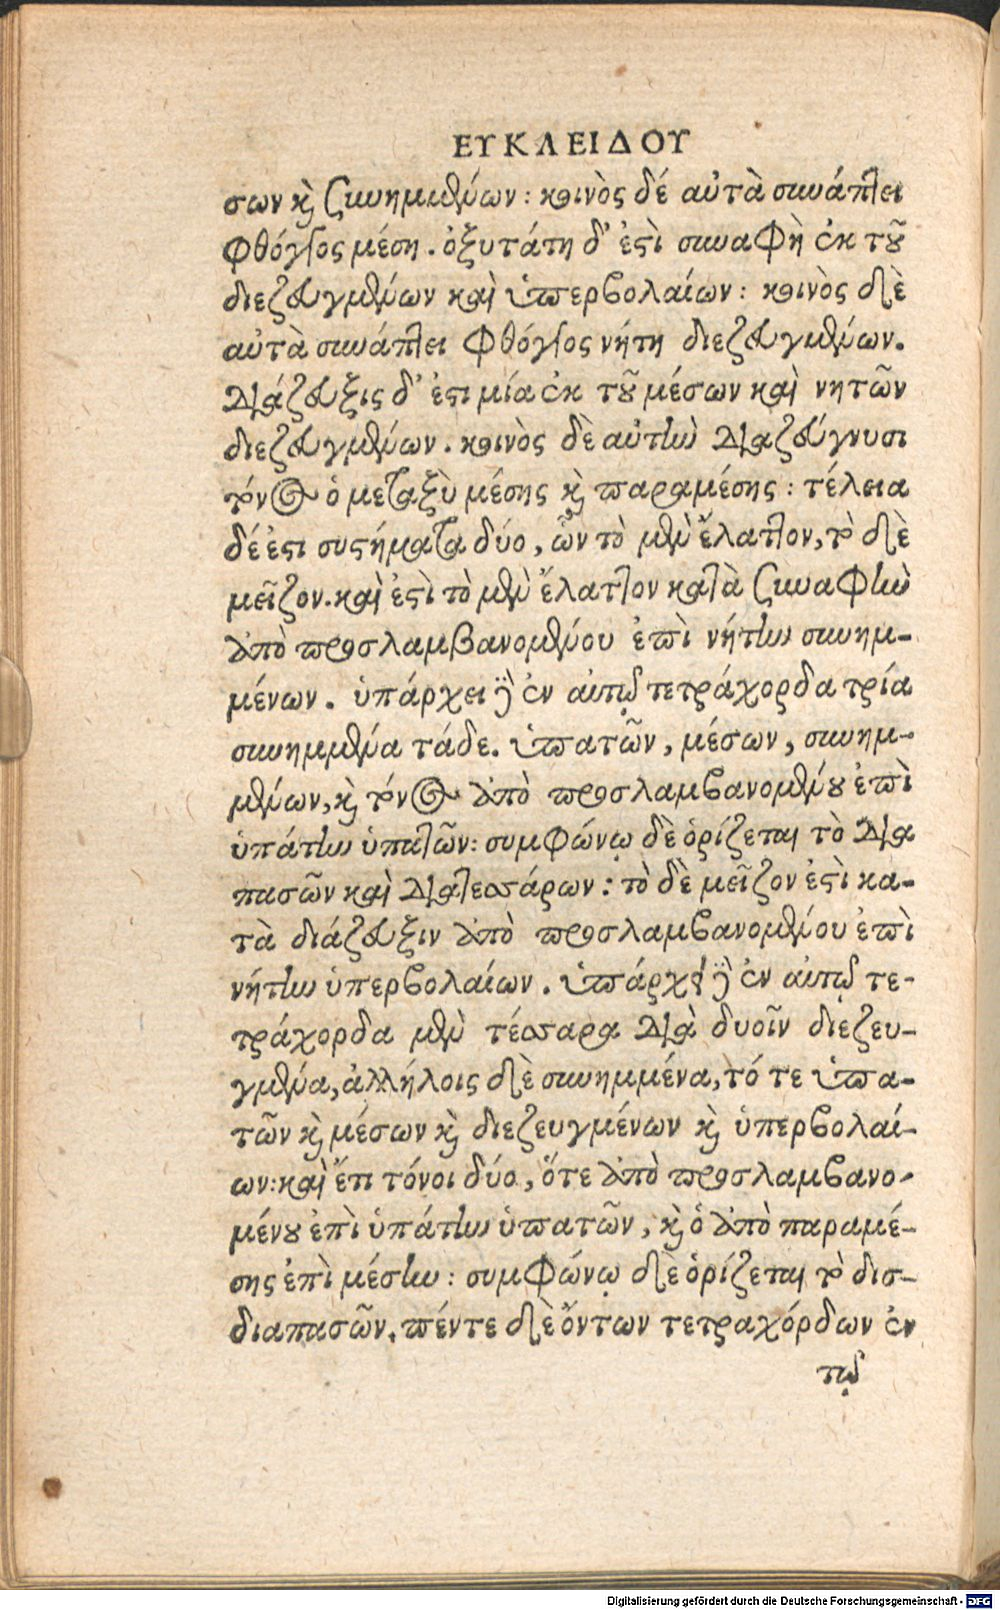 ΕΥΚΛΕΙΔΟΥ
σων καὶ συνημμένων: κοινὸς δέ αὐτὰ συνάπτει
φθόγγος μέση. ὀξυτάτη δ' ἐστὶ συναφὴ ἐκ τοῦ
διεζευγμένων καὶ ὑπερβολαίων: κοινὸς δὲ
αὐτὰ συνάπτει φθόγγος νήτη διεζευγμένων.
διάζευξις δ' ἐστι μία ἐκ τοῦ μέσων καὶ νητῶν
διεζευγμένων. κοινὸς δὲ αὐτὴν διαζεύγνυσι
τόνος ὁ μεταξὺ μέσης καὶ παραμέσης: τέλεια
δέ ἐστι συστήματα δύο, ὧν τὸ μὲν ἔλαττον, τὸ δὲ
μεῖζον. καὶ ἐστὶ τὸ μὲν ἔλαττον κατὰ συναφὴν
ἀπὸ προσλαμβανομένου ἐπὶ νήτην συνημ-
μένων. ὑπάρχει δὲ ἐν αὐτῷ τετράχορδα τρία
συνημμένα τάδε. ὑπατῶν, μέσων, συνημ-
μένων, καὶ τόνος ἀπὸ προσλαμβανομένου ἐπὶ
ὑπάτην ὑπατῶν: συμφώνῳ δὲ ὁρίζεται τὸ δια
πασῶν καὶ διατεσσάρων: τὸ δὲ μεῖζον ἐστὶ κα-
τὰ διάζευξιν ἀπὸ προσλαμβανομένου ἐπὶ
νήτην ὑπερβολαίων. ὑπάρχει δὲ ἐν αὐτῷ τε-
τράχορδα μὲν τέσσαρα διὰ δυοῖν διεζευ-
γμένα, ἀλλήλοις δὲ συνημμένα, τό τε ὑπα-
τῶν καὶ μέσων καὶ διεζευγμένων καὶ ὑπερβολαί-
ων: καὶ ἔτι τόνοι δύο, ὅτε ἀπὸ προσλαμβανο-
μένου ἐπὶ ὑπάτην ὑπατῶν, καὶ ὁ ἀπὸ παραμέ-
σης ἐπὶ μέσην: συμφώνῳ δὲ ὁρίζεται τὸ δισ-
διαπασῶν. πέντε δὲ ὄντων τετραχόρδων ἐν
τῷ
Digitalisierung gefördert durch die Deutsche Forschungsgemeinschaft - DFG